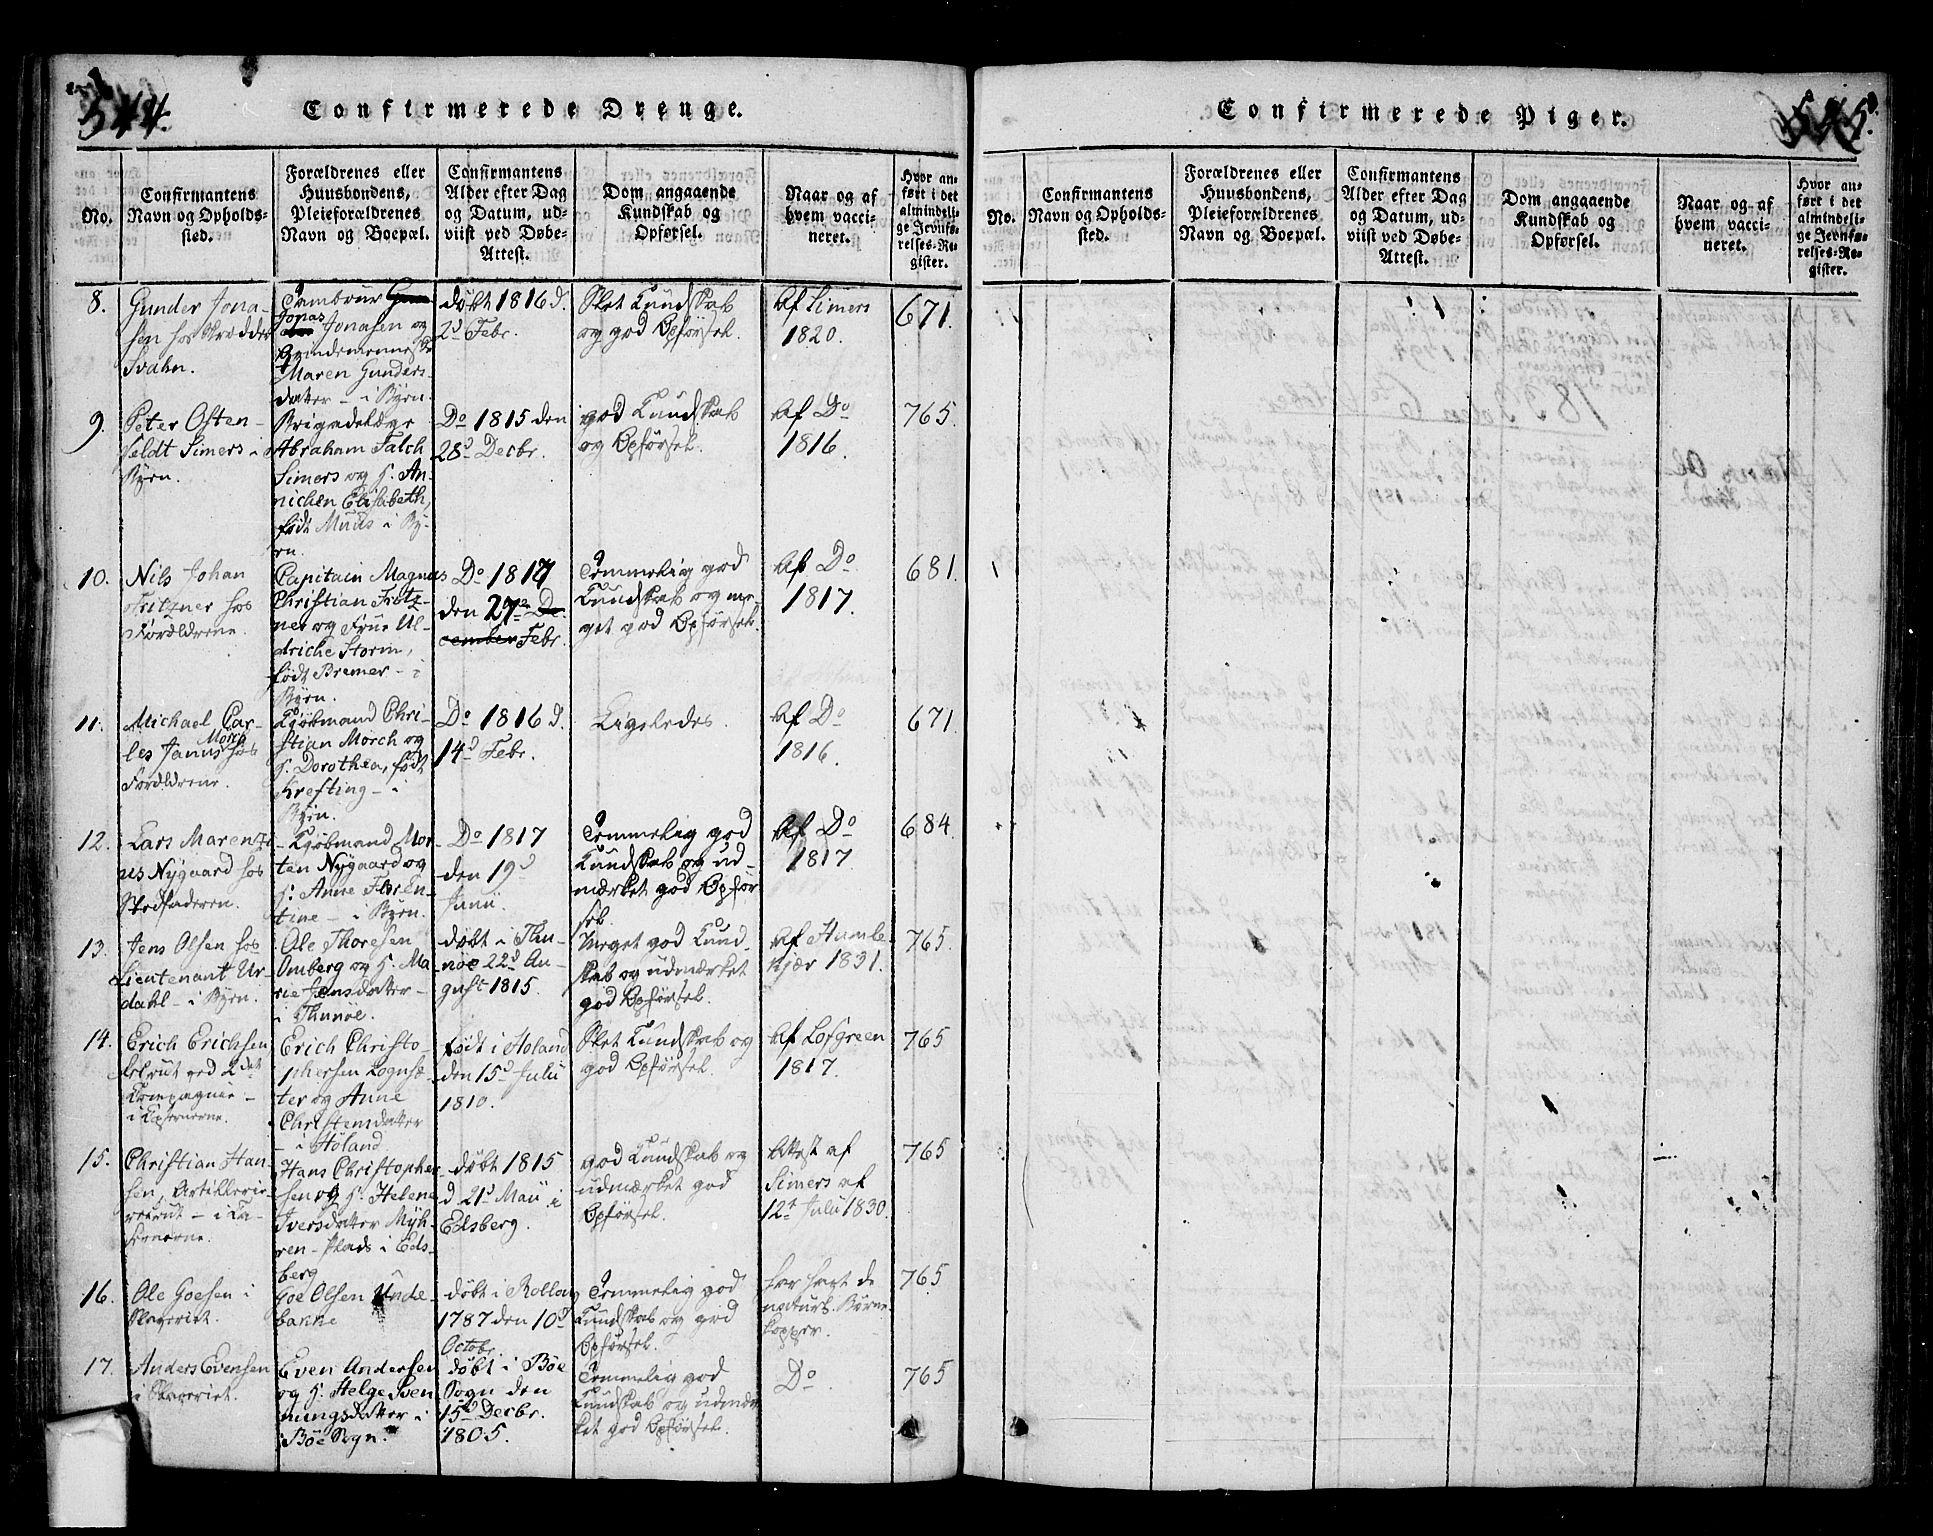 544.
Confirmerede Drenge.
No.
Confirmantens
Navn og Opholds-
sted.
Forældrenes eller
Huusbondens,
Pleieforældrenes
Navn og Boepæl.
Confirmantens
Alder efter Dag
og Datum, ud-
viist ved Døbe-
Attest.
Dom angaaende
Kundskab og
Opførsel.
Naar og af
hvem vacci-
neret.
Hvor an-
ført i det
almindeli-
ge Jevnfø-
relses-Re-
gister.
8.
Gunder Jona-
sen hos Skrædder
Svahn.
Tambour
Jonas Jonasen og
Qvindemenneske
Maren Gunders-
datter - i Byen
døbt 1816 d.
2d Febr.
Slet Kundskab
og god Opførsel.
Af Simers
1820.
671.
9.
Peter Osten-
feldt Simers i
Byen.
Brigadelæge
Abraham Falch
Simers og H. An-
nichen Elisabeth,
født Muus i By-
en.
Do 1815 den
28d Decbr.
god Kundskab
og Opførsel.
Af Do
1816.
765.
10.
Nils Johan
Fritzner hos
Forældrene.
Capitain Magnus
Christian Fritz-
ner og Frue Ul-
driche Storm,
født Bremer - i
Byen.
Do 1817
den 27de De-
cember Febr.
Temmelig god
Kundskab og me-
get god Opførsel.
Af Do
1817.
681.
11.
Michael Car-
les Janus Mørch hos
Forældrene.
Kjøbmand Chri-
stian Mørch og
H. Dorothea, født
Krefting - i
Byen.
Do 1816 d.
14d Febr.
Ligeledes.
Af Do
1816.
671.
12.
Lars Marenti-
us Nygaard hos
Stedfaderen.
Kjøbmand Mor-
ten Nygaard og
H. Anne Floren-
tine - i Byen.
Do 1817
den 19d
Junii.
Temmelig god
Kundskab og ud-
mærket god Opfør-
sel.
Af Do
1817
684.
13.
Jens Olsen hos
Lieutenant Ur-
dahl - i Byen.
Ole Thoresen
Omberg og H. Ma-
rie Jensdatter -
i Thunøe.
døbt i Thu-
nøe 22d Au-
gust 1815.
Meget god Kund-
skab og udmærket
god Opførsel.
Af Humle-
kjær 1831.
765.
14.
Erich Erichsen,
Recrut ved 2det
Compagnie -
i Casernerne.
Erich Christo-
phersen Lognsæ-
ter og Anne
Christensdatter
- i Høland
født i Høland
den 15d Julii
1810.
Slet Kundskab og
god Opførsel.
Af Lofgreen
1817.
765
15.
Christian Han-
sen, Artillerie-
recrut - i Ca-
sernerne.
Hans Christopher-
sen og H. Helene
Iversdatter Myh-
ren - Plads i Eds-
berg
døbt 1815
d 21d Maii i
Edsberg.
god Kundskab og
udmærket god
Opførsel.
Attest af
Simers af
12t Julii 1830.
765
16.
Ole Goesen i
Slaveriet.
Goe Olsen Unde-
bakke
døbt i Rollag
1787 den 10d
Octobr.
Temmelig god
Kundskab og god
Opførsel.
har havt de
naturl. Børne-
kopper.
765
17.
Anders Evensen
i Slaveriet.
Even Andersen
og H. Helge Sven-
nungsdatter i
Bøe Sogn.
døbt i Bøe
Sogn den
15d Decbr.
1805.
Temmelig god
Kundskab og udmær-
ket god Opførsel.
Do
765
545.
Confirmerede Piger.
No.
Confirmantens
Navn og Opholds-
sted.
Forældrenes eller
Huusbondens,
Pleieforældrenes
Navn og Boepæl.
Confirmantens
Alder efter Dag
og Datum, ud-
viist ved Døbe-
Attest.
Dom angaaende
Kundskab og
Opførsel.
Naar og af
hvem vacci-
neret.
Hvor an-
ført i det
almindeli-
ge Jevnfø-
relses-Re-
gister.